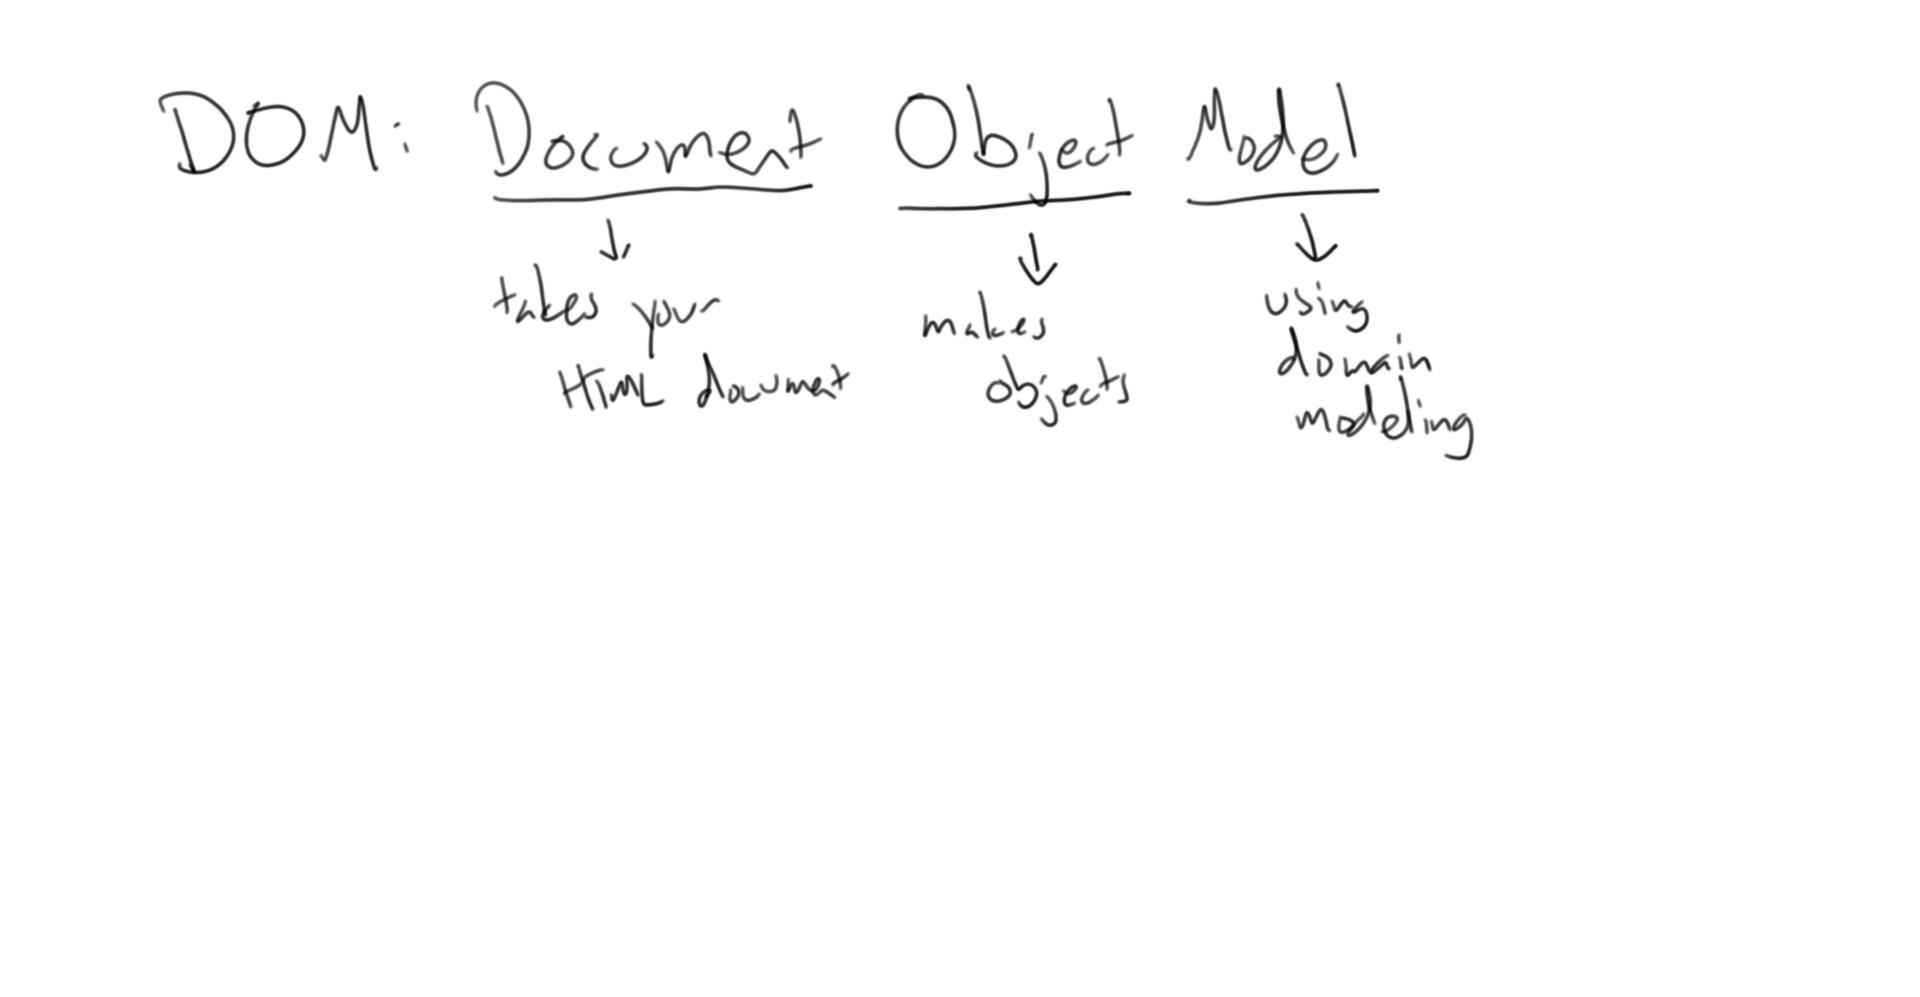 DOM: Document Object Model
takes your
HTML document
makes
objects
using
domain
modeling